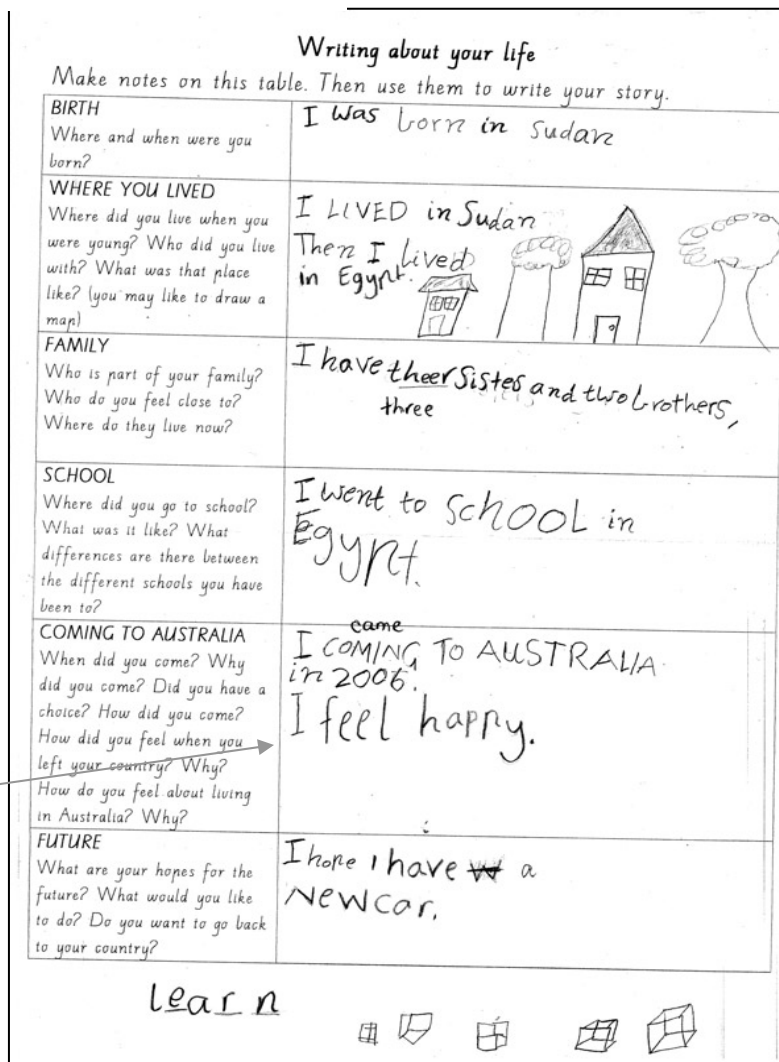 Writing about your life
Make notes on this table. Then use them to write your story.
BIRTH
Where and when were you
born?
I was born in Sudan
WHERE YOU LIVED
Where did you live when you
were young? Who did you live
with? What was that place
like? (you may like to draw a
map)
I LIVED in Sudan
Then I lived
in Egynt.
FAMILY
Who is part of your family?
Who do you feel close to?
Where do they live now?
I have theer Sisters and two brothers,
three
SCHOOL
Where did you go to school?
What was it like? What
differences are there between
the different schools you have
been to?
I went to SCHOOL in
Egynt.
COMING TO AUSTRALIA
When did you come? Why
did you come? Did you have a
choice? How did you come?
How did you feel when you
left your country? Why?
How do you feel about living
in Australia? Why?
came
I COMING TO AUSTRALIA
in 2006.
I feel happy.
FUTURE
What are your hopes for the
future? What would you like
to do? Do you want to go back
to your country?
I hope I have a
New car.
learn